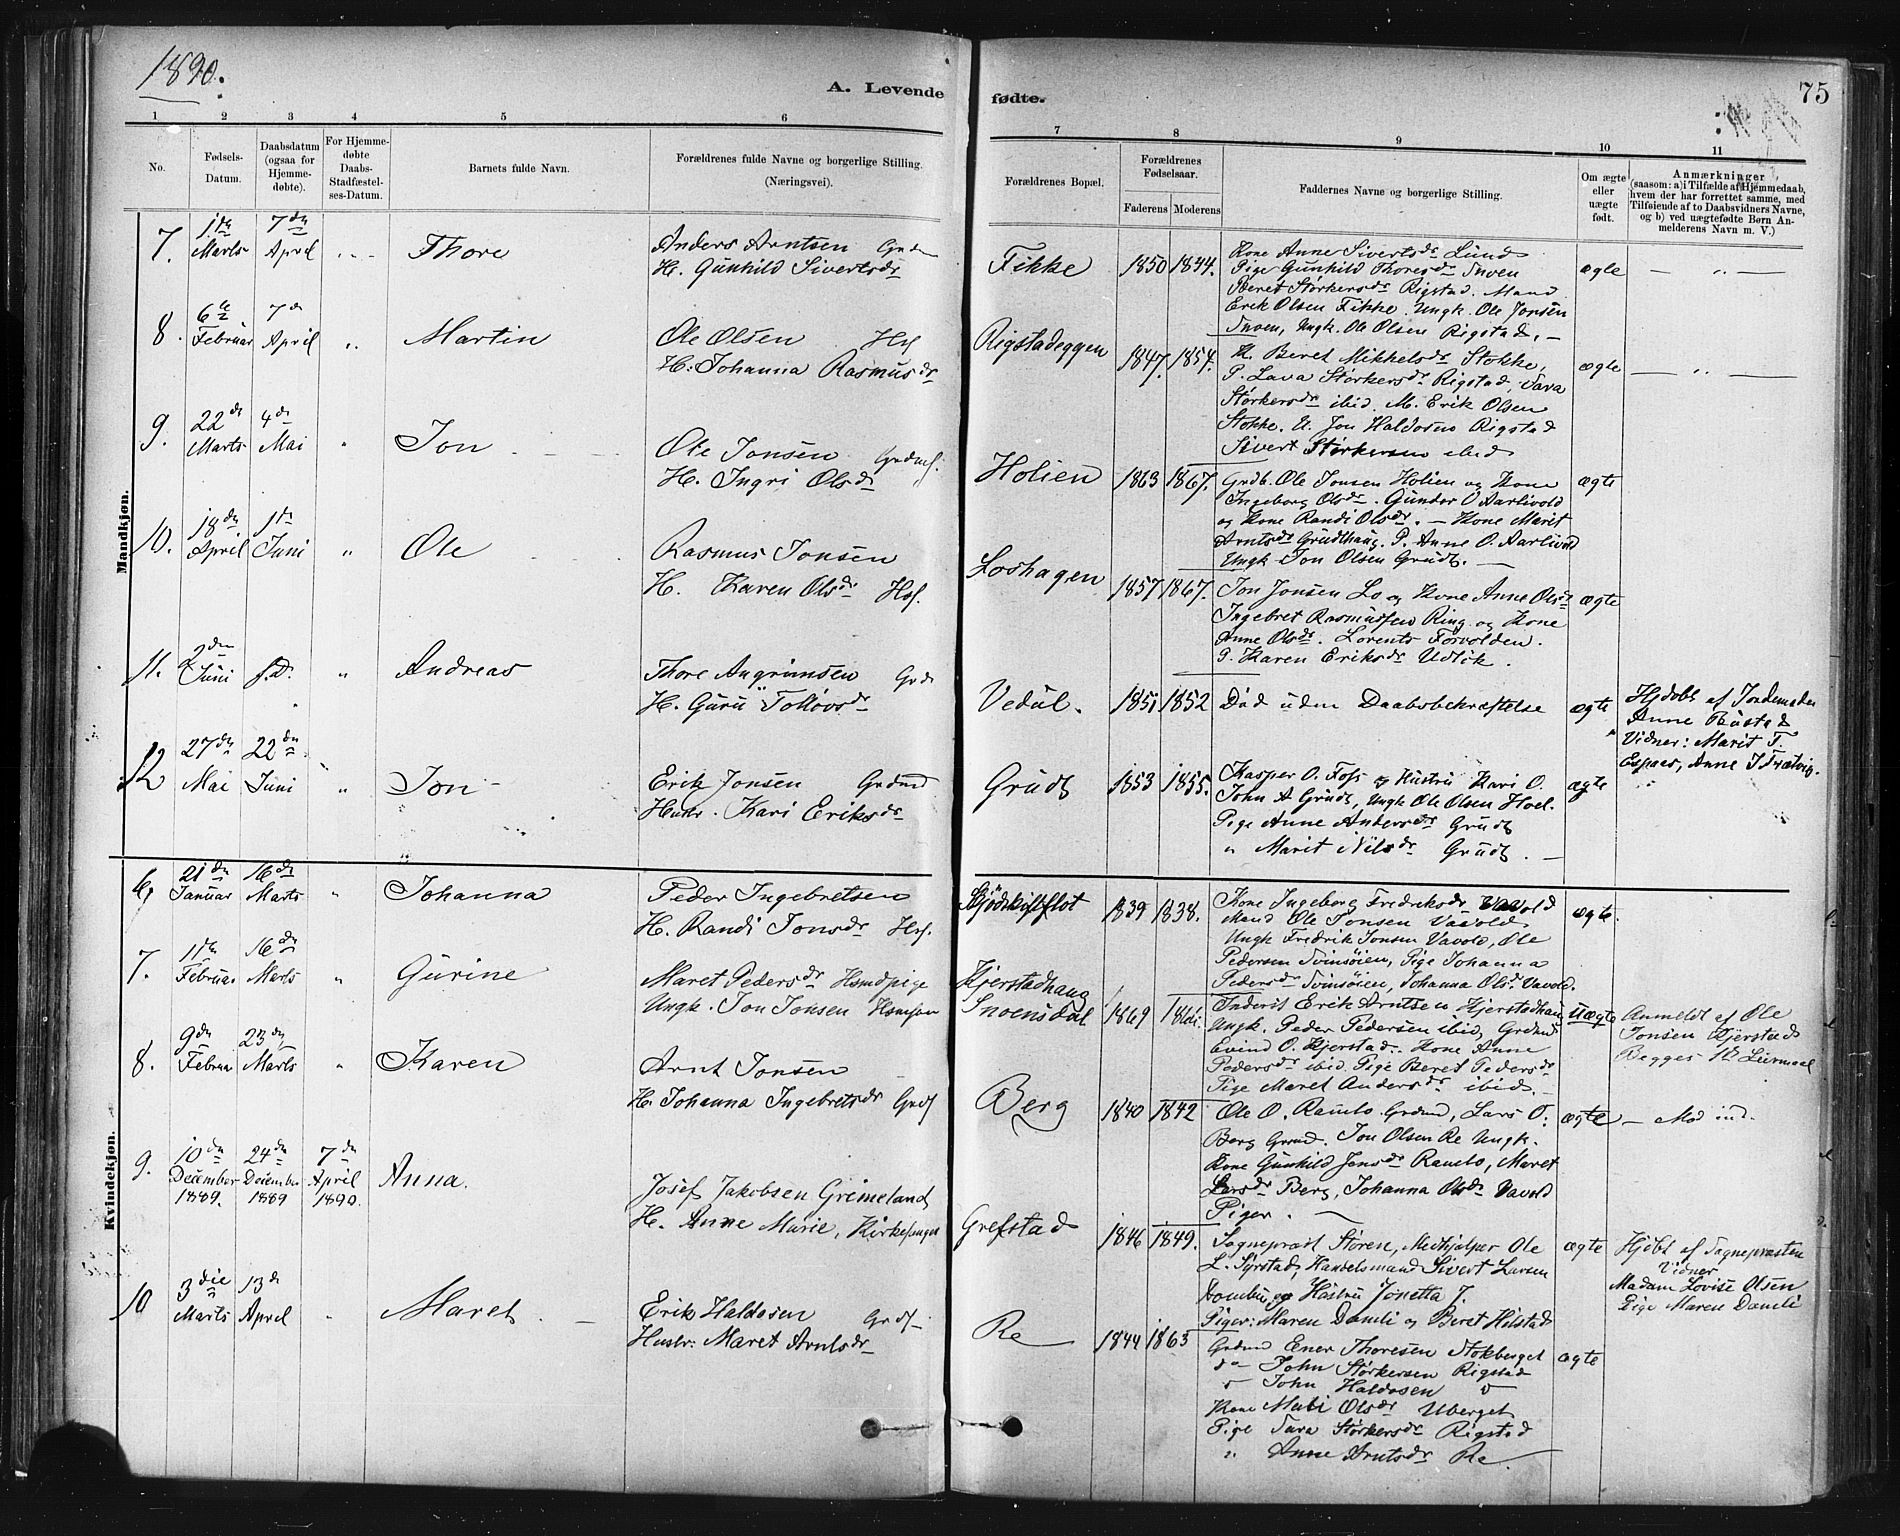 1890.
A. Levende
fødte.
75
1 2 3 4 5 6 7 8 9 10 11
No.
Fødsels-Datum.
Daabsdatum (ogsaa for Hjemme-døbte).
For Hjemme-døbte Daabs-Stadfæstel-ses-Datum.
Barnets fulde Navn.
Forældrenes fulde Navne og borgerlige Stilling. (Næringsvei).
Forældrenes Bopæl.
Forældrenes Fødselsaar.
Faderens Moderens
Faddernes Navne og borgerlige Stilling.
Om ægte eller uægte født.
Anmærkninger
(saasom: a) i Tilfælde af Hjemmedaab, hvem der har forrettet samme, med Tilføiende af to Daabsvidners Navne, og b) ved uægtefødte Børn An-melderens Navn m. V.)
Mandkjøn.
7. 1ste Marts 7de April Thore
Anders Arntsen
H. Gunhild Sivertsdr
Fikke 1850 1844.
Kone Anne Sivertsdr Lund
Pige Gunhild Thoresdr
Beret Størkersdr Rigstad. Mand
Erik Olsen Fikke. Ungk. Ole Jonsen
Ungk. Ole Olsen Rigstad. –
ægte
8. 6te Februar 7de April Martin
Ole Olsen Hsf
H: Johanna Rasmusdr
Rigstadeggen 1847. 1854.
K. Beret Mikkelsdr Stokke,
P. Lava Størkersdr Rigstad, Sara
Størkersdr ibid. M. Erik Olsen
Stokke. U. Jon Haldosen Rigstad
Sivert Størkersen ibid
ægte
9. 22de Marts 4de Mai Jon
Ole Jonsen Grdmf.
H. Ingri Olsdr
Holien 1863 1867.
Grdb. Ole Jonsen Holien og Kone
Ingeborg Olsdr. Gunder O Aarlivold
og Kone Randi Olsdr. – Kone Marit
Arntsdr Grudthaug. P. Anne O. Aarlivold
Ungk Jon Olsen Grudt. –
ægte
10. 18de April 1ste Juni Ole
Rasmus Jonsen
H. Karen Olsdr Hsf.
Loshagen 1857 1867.
Jon Jonsen Lo og Kone Anne Olsdr
Ingebret Rasmussen Ring og Kone
Anne Olsdr. Lorents Forvolden.
P. Karen Eriksdr Udløk.
ægte
11. 2den Juni s.D. Andreas
Thore Angrimsen
H. Guru Tollovsdr
Vedul. 1851. 1852
Død uden Daabsbekræftelse
ægte
Hjdøbt af Jordemoder
Anne Rustad
Vidner: Marit T.
Espaas, Anne J Trætvig.
12 27de Mai 22de Juni Jon
Erik Jonsen Grdmd
Hustr. Kari Eriksdr
Grudt 1853 1855.
Kasper O. Foss og Hustru Kari O.
John A Grudt, Ungk Ole Olsen Hoel.
Pige Anne Andersdr Grudt
" Marit Nilsdr Grudt. –
ægte
Kvindekjøn.
6. 21de Januar 16de Marts Johanna
Peder Ingebretsen
H. Randi Jonsdr Hsf.
1839 1838.
Kone Ingeborg Fredriksdr Vavold
Mand Ole Jonsen Vavold,
Ungk Fredrik Jonsen Vavold, Ole
Pedersen Svinsøien, Pige Johanna
Pedersdr Svinsøien, Johanna Olsdr Vavold.
ægte.
7. 1ste Februar 16de Marts Gurine
Maret Pedersdr Hsmdpige
Ungk. Jon Jonsen
Kjerstadhaug
Snoensdal 1869
Inderst Erik Arntsen Kjerstadhau
Ungk. Peder Pedersen ibid, Grdmd
Evind O. Kjerstad. Kone Anne
Pedersdr ibid. Pige Beret Pedersdr
Pige Maret Andersdr ibid –
uægte
Anmeldt af Ole
Jonsen Kjerstad
Begges 1ste Leiermaal
8. 9de Februar 23de Marts Karen
Arnt Jonsen
H. Johanna Ingebretsdr
Berg 1840 1842
Ole O. Ramlo Grdmd, Lars O.
Berg Grdmd. Jon Olsen Re Ungk.
Kone Gunhild Jensdr Ramlo, Maret
Larsdr Berg, Johanna Olsdr Vavold
Piger.
ægte – Mod ind.
9. 10de December 1889. 24de December 1889 7de April 1890. Anna.
Josef Jakobsen Grimeland
H. Anne Marie, Kirkesanger
Grefstad 1846 1849.
Sognepræst Støren, Medhjælper Ole
L. Syrstad, Handelsmand Sivert Larsen
og Hustru Jonetta J.
Piger: Maren Damli og Beret Hilstad
ægte
Hjdbt af Sognepræsten
Vidner
Madam Lovise Olsen
Pige Maren Damli
10 3die Marts 13de April Maret.
Erik Haldosen
Hustr: Maret Arntsdr
Re 1844 1863
Grdmd Ener Thoresen Stokberget
do John Størkersen Rigstad
" John Haldosen "
Kone Mali Olsdr Uberget
Pige Sara Størkersdr Rigstad
" Anne Arntsdr Re.
ægte